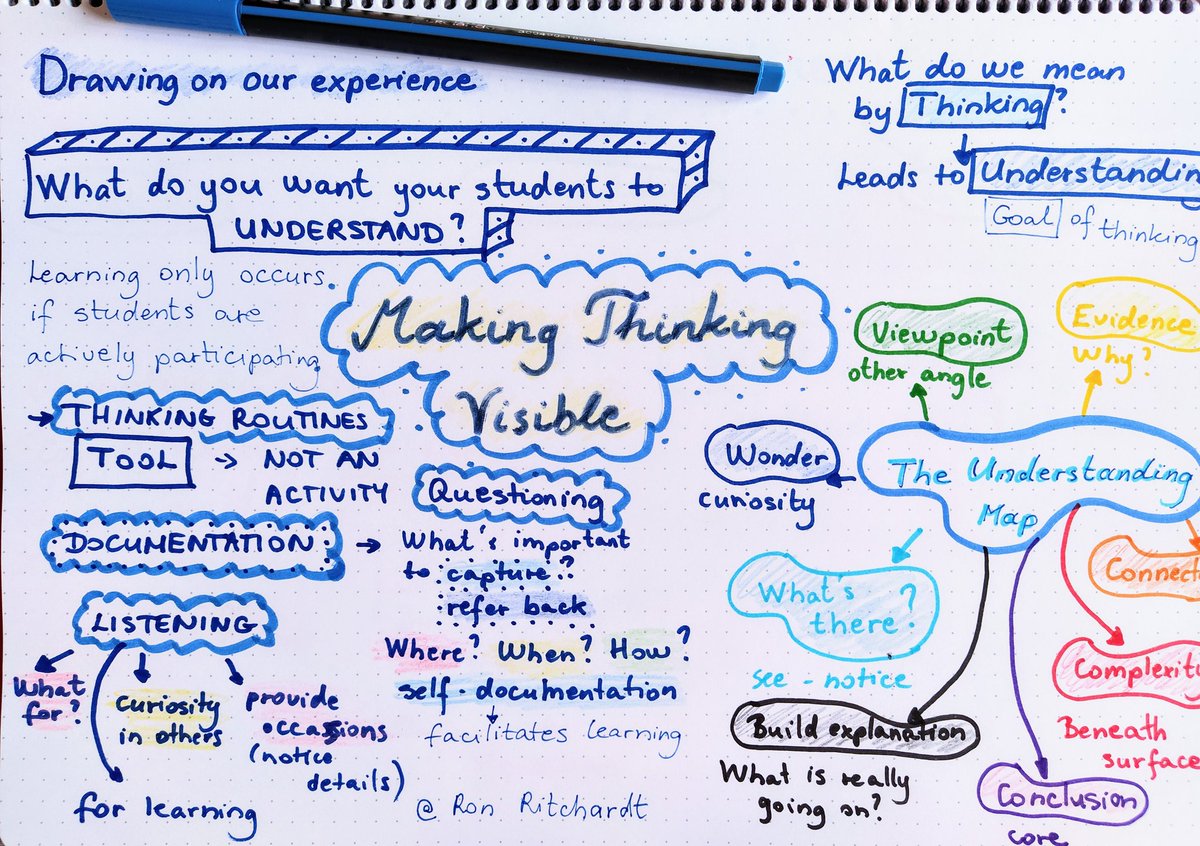 Drawing on our experience
What do you want your students to
UNDERSTAND?
Learning only occurs
if students are
actively participating
Making Thinking
Visible
THINKING ROUTINES
TOOL → NOT AN
ACTIVITY
DOCUMENTATION →
LISTENING
What
for?
curiosity
in others
provide
occassions
(notice
details)
for learning
Questioning
What's important
to capture?
refer back
Where? When? How?
self-documentation
facilitates learning
@ Ron Ritchardt
What do we mean
by Thinking?
Leads to Understandin
Goal of thinking
The Understanding
Map
Viewpoint
other angle
Evidence
Why?
Wonder
curiosity
What's
there?
see - notice
Build explanation
What is really
going on?
Conclusion
core
Complexit
Beneath
surface
Connect